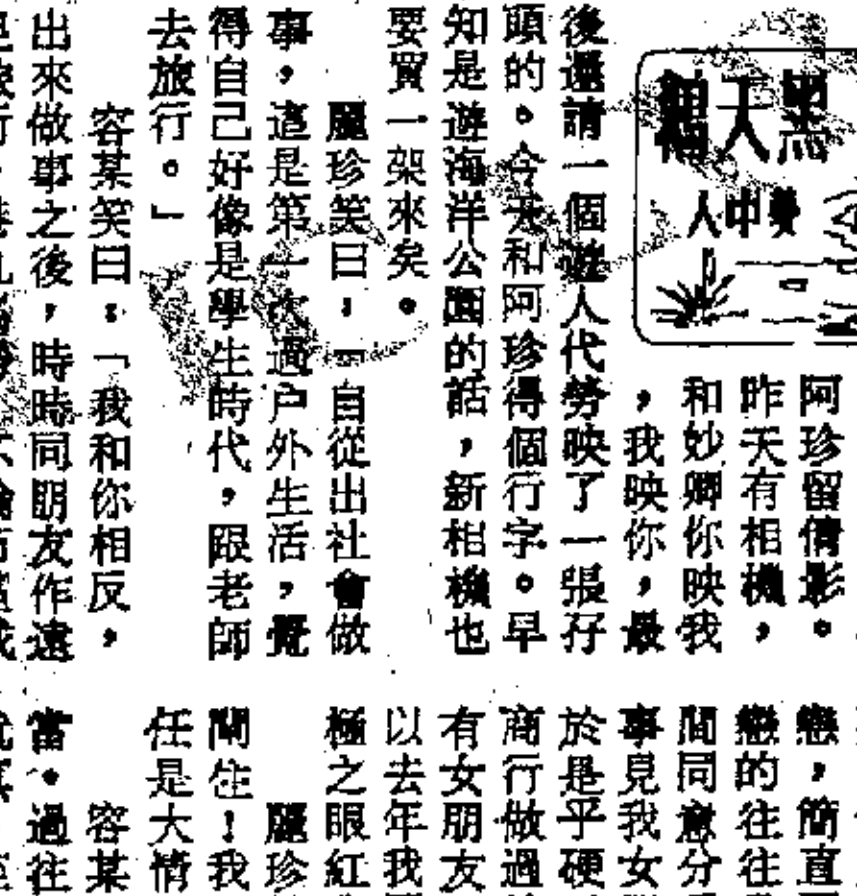 黑天鵝
勞中人
阿珍留倩影。
昨天有相機,
和妙卿你映我
,我映你,最
後還請一個遊人代勞映了一張孖
頭的。今天和阿珍得個行字。早
知是遊海洋公園的話,新相機也
要買一架來矣。
麗珍笑曰:「自從出社會做
事,這是第一次過户外生活,覺
得自己好像是學生時代,跟老師
去旅行。」
容某笑曰:「我和你相反,
出來做事之後,時時同朋友作遠
戀,簡直
戀的往往
間同意分
事見我女
於是乎硬
商行做過
有女朋友
以去年我
極之眼紅
麗珍
關住!我
任是大情
容某
當。過往